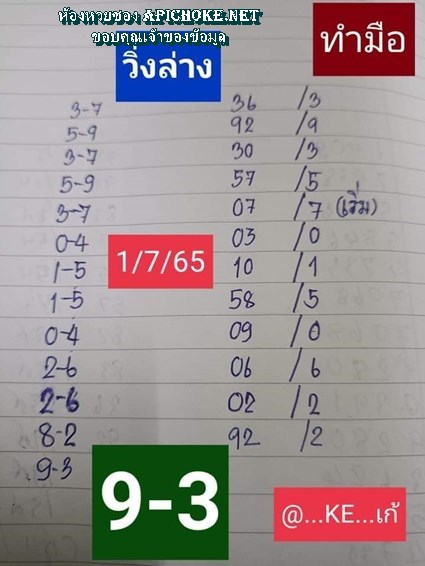 ห้องหวยซอง APICHOKE.NET
ขอบคุณเจ้าของข้อมูล
วิ่งล่าง
ทำมือ
3-7 36 /3
5-9 92 /9
3-7 30 /3
5-9 57 /5
3-7 07 /7 (เริ่ม)
0-4 03 /0
1/7/65
1-5 10 /1
1-5 58 /5
0-4 09 /0
2-6 06 /6
2-6 02 /2
8-2 92 /2
9-3
9-3
@...KE...เก้